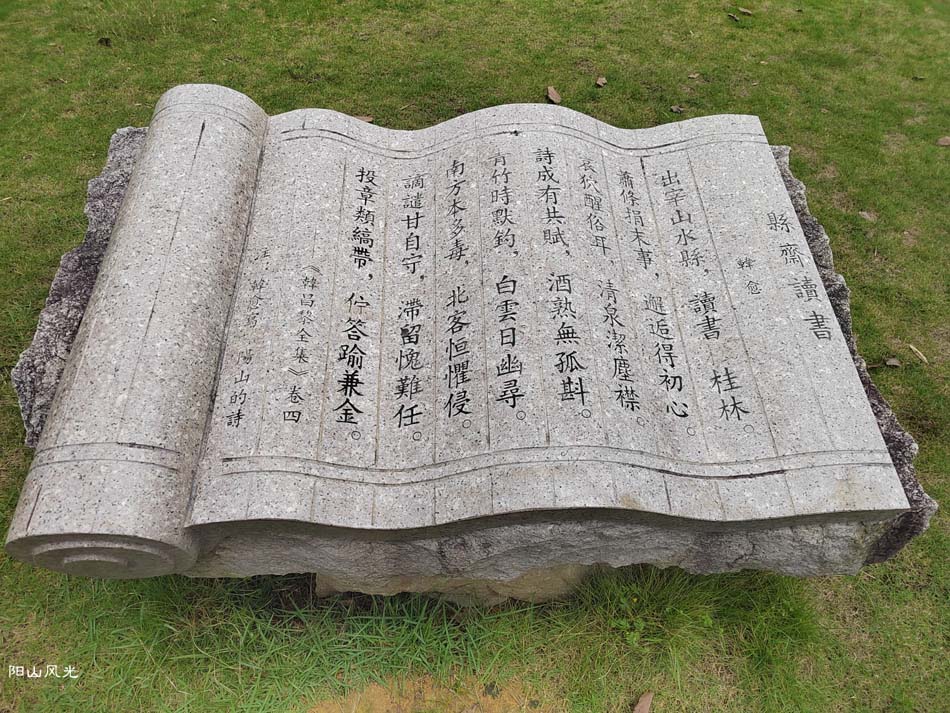 縣齋讀書
韓愈
出宰山水縣，讀書 桂林。
蕭條捐末事，邂逅得初心。
哀狖醒俗耳，清泉潔塵襟。
詩成有共賦，酒熟無孤斟。
青竹時默釣，白雲日幽尋。
南方本多毒，北客恒懼侵。
謫譴甘自守，滯留愧難任。
投章類縞帶，佇答踰兼金。
《韓昌黎全集》卷四
注：韓愈寫 陽山的詩
阳山风光